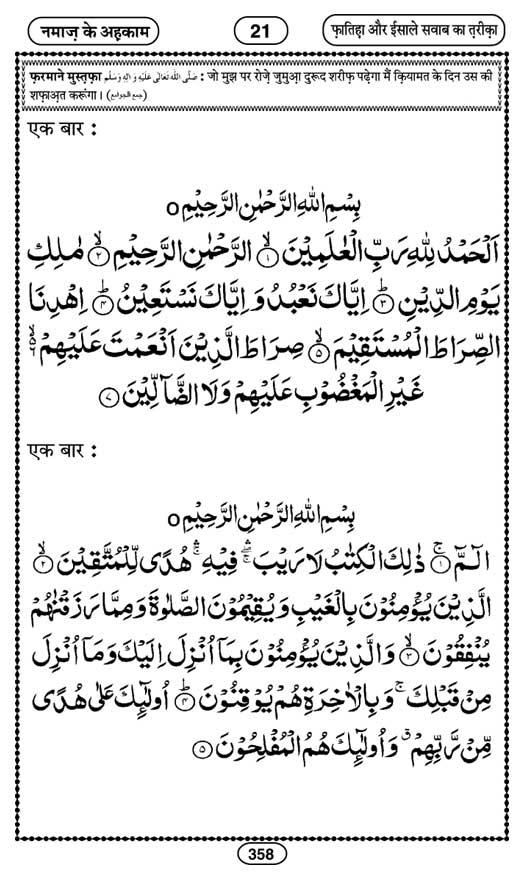 नमाज़ के अह़काम
21
फ़ातिह़ा और ईसाले सवाब का त़रीक़ा
फ़रमाने मुस्त़फ़ा صَلَّى اللّٰهُ تَعَالٰى عَلَيْهِ وَاٰلِهٖ وَسَلَّم : जो मुझ पर रोज़े जुमुआ़ दुरूद शरीफ़ पढ़ेगा मैं क़ियामत के दिन उस की
शफ़ाअ़त करूंगा। (جمع الجوامع)
एक बार :
بِسْمِ اللّٰهِ الرَّحْمٰنِ الرَّحِيْمِ ○
اَلْحَمْدُ لِلّٰهِ رَبِّ الْعٰلَمِيْنَ ۙ﴿۱﴾ الرَّحْمٰنِ الرَّحِيْمِ ۙ﴿۲﴾ مٰلِكِ
يَوْمِ الدِّيْنِ ؕ﴿۳﴾ اِيَّاكَ نَعْبُدُ وَ اِيَّاكَ نَسْتَعِيْنُ ؕ﴿۴﴾ اِهْدِنَا
الصِّرَاطَ الْمُسْتَقِيْمَ ۙ﴿۵﴾ صِرَاطَ الَّذِيْنَ اَنْعَمْتَ عَلَيْهِمْ ۙ۬
غَيْرِ الْمَغْضُوْبِ عَلَيْهِمْ وَلَا الضَّآلِّيْنَ ﴿۷﴾
एक बार :
بِسْمِ اللّٰهِ الرَّحْمٰنِ الرَّحِيْمِ ○
الٓمّٓ ۚ﴿۱﴾ ذٰلِكَ الْكِتٰبُ لَا رَيْبَ ۖۛ فِيْهِ ۚۛ هُدًى لِّلْمُتَّقِيْنَ ۙ﴿۲﴾
الَّذِيْنَ يُؤْمِنُوْنَ بِالْغَيْبِ وَيُقِيْمُوْنَ الصَّلٰوةَ وَمِمَّا رَزَقْنٰهُمْ
يُنْفِقُوْنَ ۙ﴿۳﴾ وَالَّذِيْنَ يُؤْمِنُوْنَ بِمَآ اُنْزِلَ اِلَيْكَ وَمَآ اُنْزِلَ
مِنْ قَبْلِكَ ۚ وَبِالْاٰخِرَةِ هُمْ يُوْقِنُوْنَ ؕ﴿۴﴾ اُولٰٓئِكَ عَلٰى هُدًى
مِّنْ رَّبِّهِمْ ۗ وَاُولٰٓئِكَ هُمُ الْمُفْلِحُوْنَ ﴿۵﴾
358